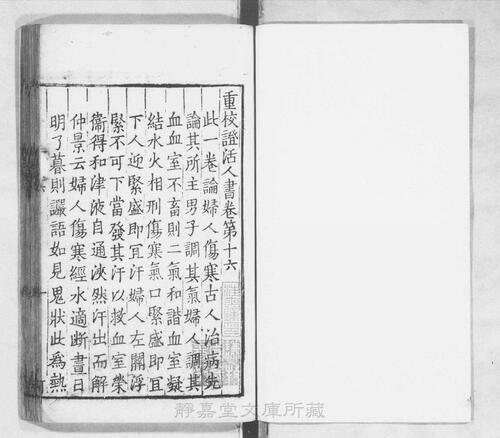 重校證活人書卷第十六
此一卷論婦人傷寒古人治病先
論其所主男子調其氣婦人調其
血血室不蓄則二氣和諧血室凝
結水火相刑傷寒氣口緊盛即宜
下人迎緊盛即宜汗婦人左關浮
緊不可下當發其汗以救血室榮
衞得和津液自通浹然汗出而解
仲景云婦人傷寒經水適斷晝日
明了暮則讝語如見鬼狀此為熱
靜嘉堂文庫所藏